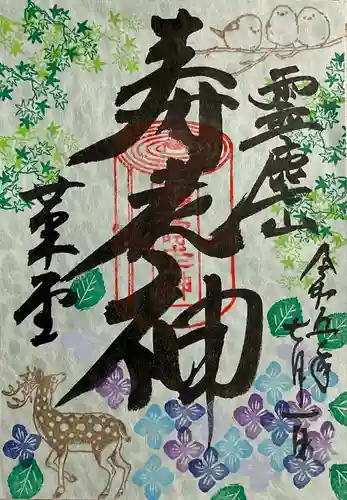 霊麀山
令和五年
七月一日
寿老神
革堂